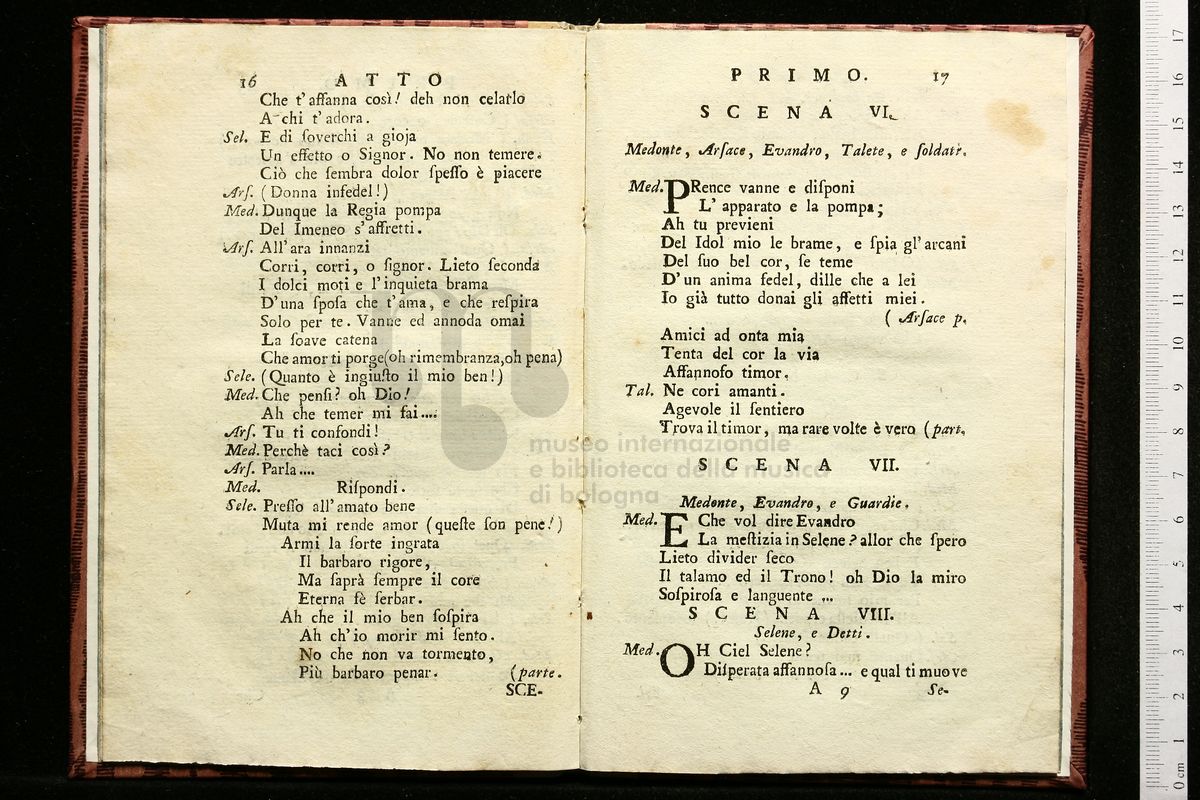 16 ATTO
Che t'affanna così! deh non celarlo
A chi t'adora.
Sel. E di ſoverchi a gioja
Un effetto o Signor. No non temere.
Ciò che ſembra dolor ſpeſſo è piacere
Arſ. (Donna infedel!)
Med. Dunque la Regia pompa
Del Imeneo s'affretti.
Arſ. All'ara innanzi
Corri, corri, o ſignor. Lieto ſeconda
I dolci moti e l'inquieta brama
D'una ſpoſa che t'ama, e che reſpira
Solo per te. Vanne ed annoda omai
La ſoave catena
Che amor ti porge(oh rimembranza,oh pena)
Sele. (Quanto è ingiuſto il mio ben!)
Med. Che penſi? oh Dio!
Ah che temer mi fai....
Arſ. Tu ti confondi!
Med. Perchè taci così?
Arſ. Parla....
Med. Riſpondi.
Sele. Preſſo all'amato bene
Muta mi rende amor (queſte ſon pene!)
Armi la ſorte ingrata
Il barbaro rigore,
Ma ſaprà ſempre il core
Eterna fè ſerbar.
Ah che il mio ben ſoſpira
Ah ch'io morir mi ſento.
No che non va tormento,
Più barbaro penar. (parte.
SCE-
PRIMO. 17
SCENA VI.
Medonte, Arſace, Evandro, Talete, e ſoldati.
Med. PRence vanne e diſponi
L' apparato e la pompa;
Ah tu previeni
Del Idol mio le brame, e ſpia gl'arcani
Del ſuo bel cor, ſe teme
D'un anima fedel, dille che a lei
Io già tutto donai gli affetti miei.
( Arſace p.
Amici ad onta mia
Tenta del cor la via
Affannoſo timor.
Tal. Ne cori amanti.
Agevole il ſentiero
Trova il timor, ma rare volte è vero (part.
SCENA VII.
Medonte, Evandro, e Guardie.
Med. E Che vol dire Evandro
La meſtizia in Selene? allor che ſpero
Lieto divider ſeco
Il talamo ed il Trono! oh Dio la miro
Soſpiroſa e languente ...
SCENA VIII.
Selene, e Detti.
Med. OH Ciel Selene?
Diſperata affannoſa... e qual ti muove
A 9 Se-
museo internazionale
e biblioteca della musica
di bologna
0 cm 1 2 3 4 5 6 7 8 9 10 11 12 13 14 15 16 17